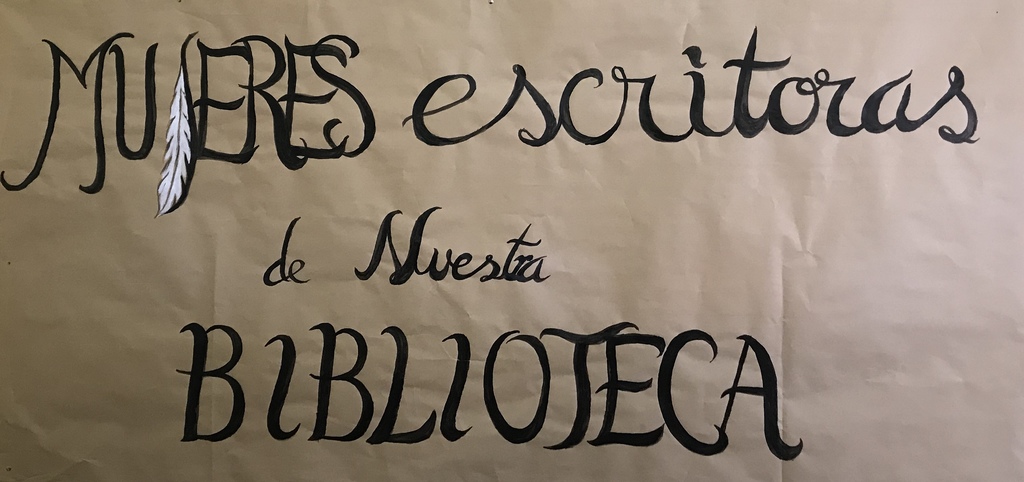 MUJERES escritoras
de Nuestra
BIBLIOTECA